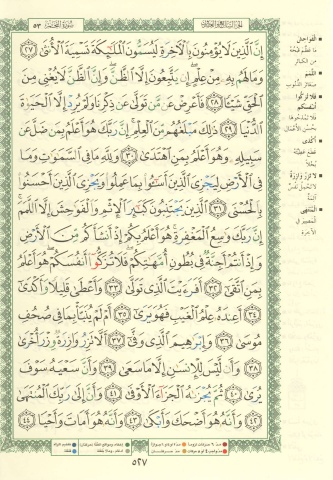 سورة النجم ٥٣
إِنَّ الَّذِينَ لَا يُؤْمِنُونَ بِالْآخِرَةِ لَيُسَمُّونَ الْمَلَائِكَةَ تَسْمِيَةَ الْأُنثَىٰ ٢٧
وَمَا لَهُم بِهِ مِنْ عِلْمٍ إِن يَتَّبِعُونَ إِلَّا الظَّنَّ وَإِنَّ الظَّنَّ لَا يُغْنِي مِنَ
الْحَقِّ شَيْئًا ٢٨ فَأَعْرِضْ عَن مَّن تَوَلَّىٰ عَن ذِكْرِنَا وَلَمْ يُرِدْ إِلَّا الْحَيَاةَ
الدُّنْيَا ٢٩ ذَٰلِكَ مَبْلَغُهُم مِّنَ الْعِلْمِ إِنَّ رَبَّكَ هُوَ أَعْلَمُ بِمَن ضَلَّ عَن
سَبِيلِهِ وَهُوَ أَعْلَمُ بِمَنِ اهْتَدَىٰ ٣٠ وَلِلَّهِ مَا فِي السَّمَاوَاتِ وَمَا
فِي الْأَرْضِ لِيَجْزِيَ الَّذِينَ أَسَاءُوا بِمَا عَمِلُوا وَيَجْزِيَ الَّذِينَ أَحْسَنُوا
بِالْحُسْنَى ٣١ الَّذِينَ يَجْتَنِبُونَ كَبَائِرَ الْإِثْمِ وَالْفَوَاحِشَ إِلَّا اللَّمَمَ
إِنَّ رَبَّكَ وَاسِعُ الْمَغْفِرَةِ هُوَ أَعْلَمُ بِكُمْ إِذْ أَنشَأَكُم مِّنَ الْأَرْضِ
وَإِذْ أَنتُمْ أَجِنَّةٌ فِي بُطُونِ أُمَّهَاتِكُمْ فَلَا تُزَكُّوا أَنفُسَكُمْ هُوَ أَعْلَمُ
بِمَنِ اتَّقَىٰ ٣٢ أَفَرَأَيْتَ الَّذِي تَوَلَّىٰ ٣٣ وَأَعْطَىٰ قَلِيلًا وَأَكْدَىٰ
٣٤ أَعِندَهُ عِلْمُ الْغَيْبِ فَهُوَ يَرَىٰ ٣٥ أَمْ لَمْ يُنَبَّأْ بِمَا فِي صُحُفِ
مُوسَىٰ ٣٦ وَإِبْرَاهِيمَ الَّذِي وَفَّىٰ ٣٧ أَلَّا تَزِرُ وَازِرَةٌ وِزْرَ أُخْرَىٰ
٣٨ وَأَن لَّيْسَ لِلْإِنسَانِ إِلَّا مَا سَعَىٰ ٣٩ وَأَنَّ سَعْيَهُ سَوْفَ
يُرَىٰ ٤٠ ثُمَّ يُجْزَاهُ الْجَزَاءَ الْأَوْفَىٰ ٤١ وَأَنَّ إِلَىٰ رَبِّكَ الْمُنتَهَىٰ
٤٢ وَأَنَّهُ هُوَ أَضْحَكَ وَأَبْكَىٰ ٤٣ وَأَنَّهُ هُوَ أَمَاتَ وَأَحْيَا ٤٤
٥٢٧
الفواحش
اللمم
فلا تزكوا
أنفسكم
أكدى
لا تزر وازرة
المنتهى